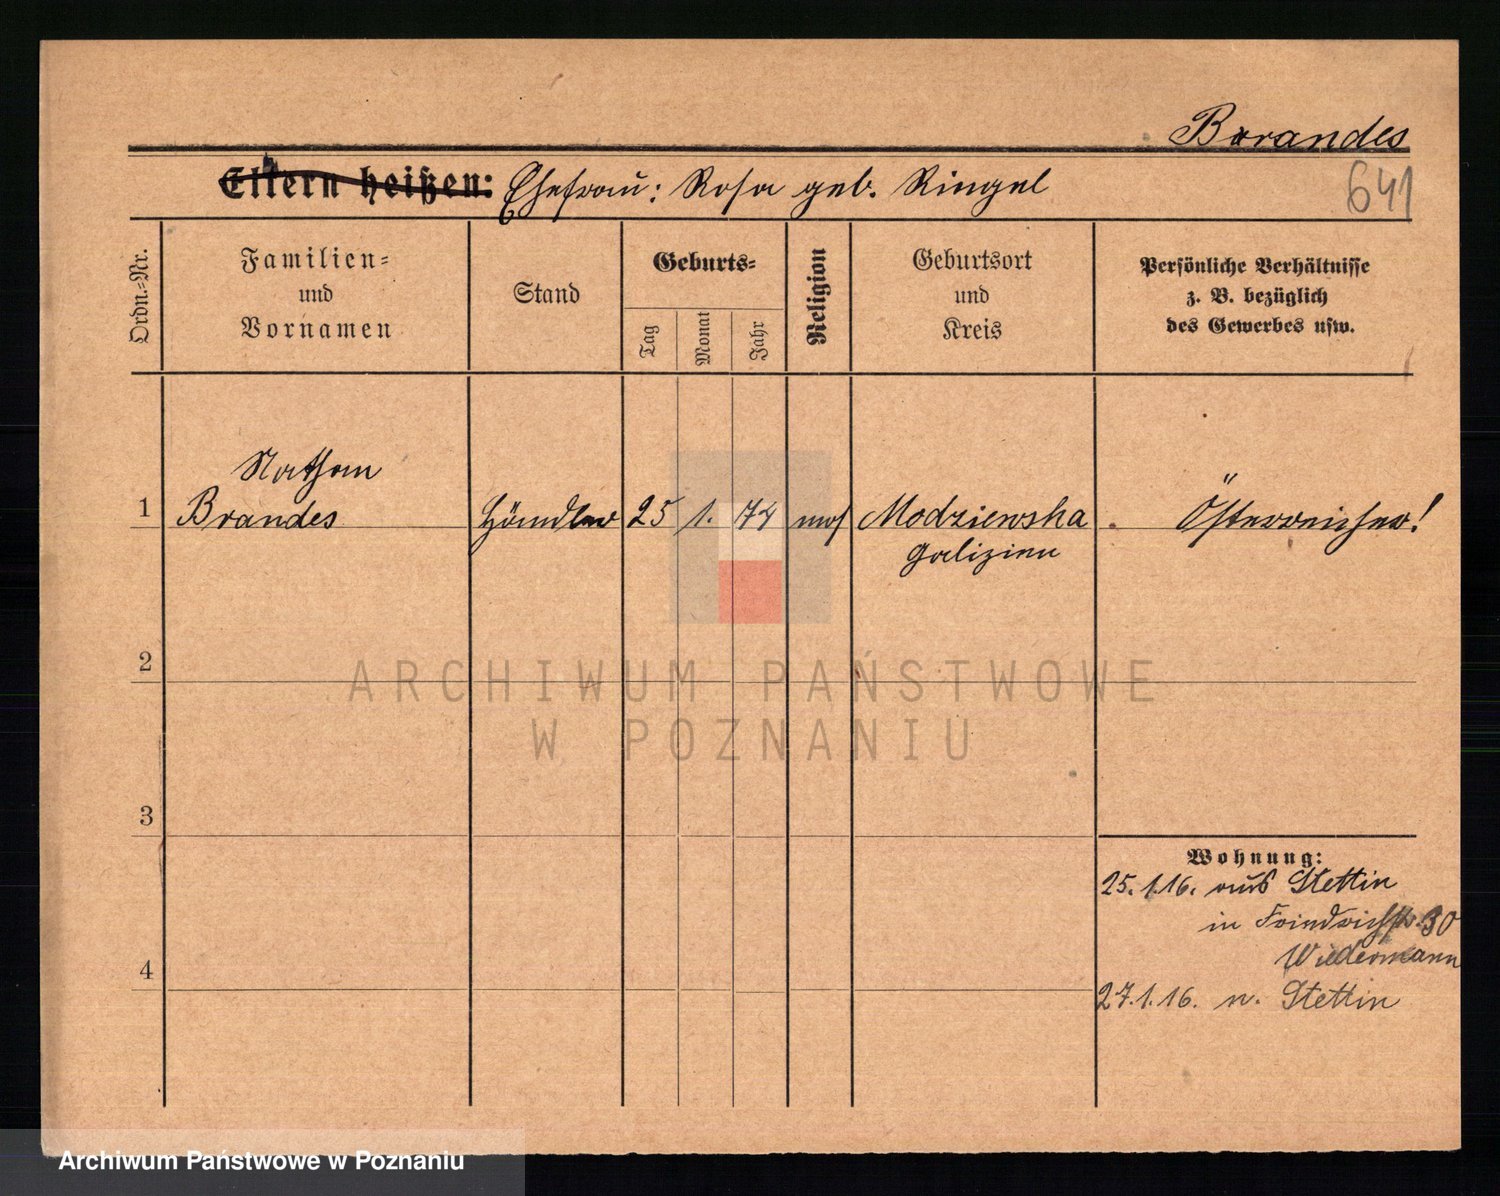 Brandes
Eltern heißen: Ehefrau: Rosa geb. Ringel
641
Ordn.-Nr.
Familien-
und
Vornamen
Stand
Geburts-
Tag
Monat
Jahr
Religion
Geburtsort
und
Kreis
Persönliche Verhältnisse
z. B. bezüglich
des Gewerbes usw.
Nathan
1 Brandes Händler 25 1. 74 mos Modziewska Österreicher!
Galizien
2
ARCHIWUM PAŃSTWOWE
W POZNANIU
3
Wohnung:
25.1.16. aus Stettin
in Friedrichstr. 30
Wiedermann
4
27.1.16. n. Stettin
Archiwum Państwowe w Poznaniu